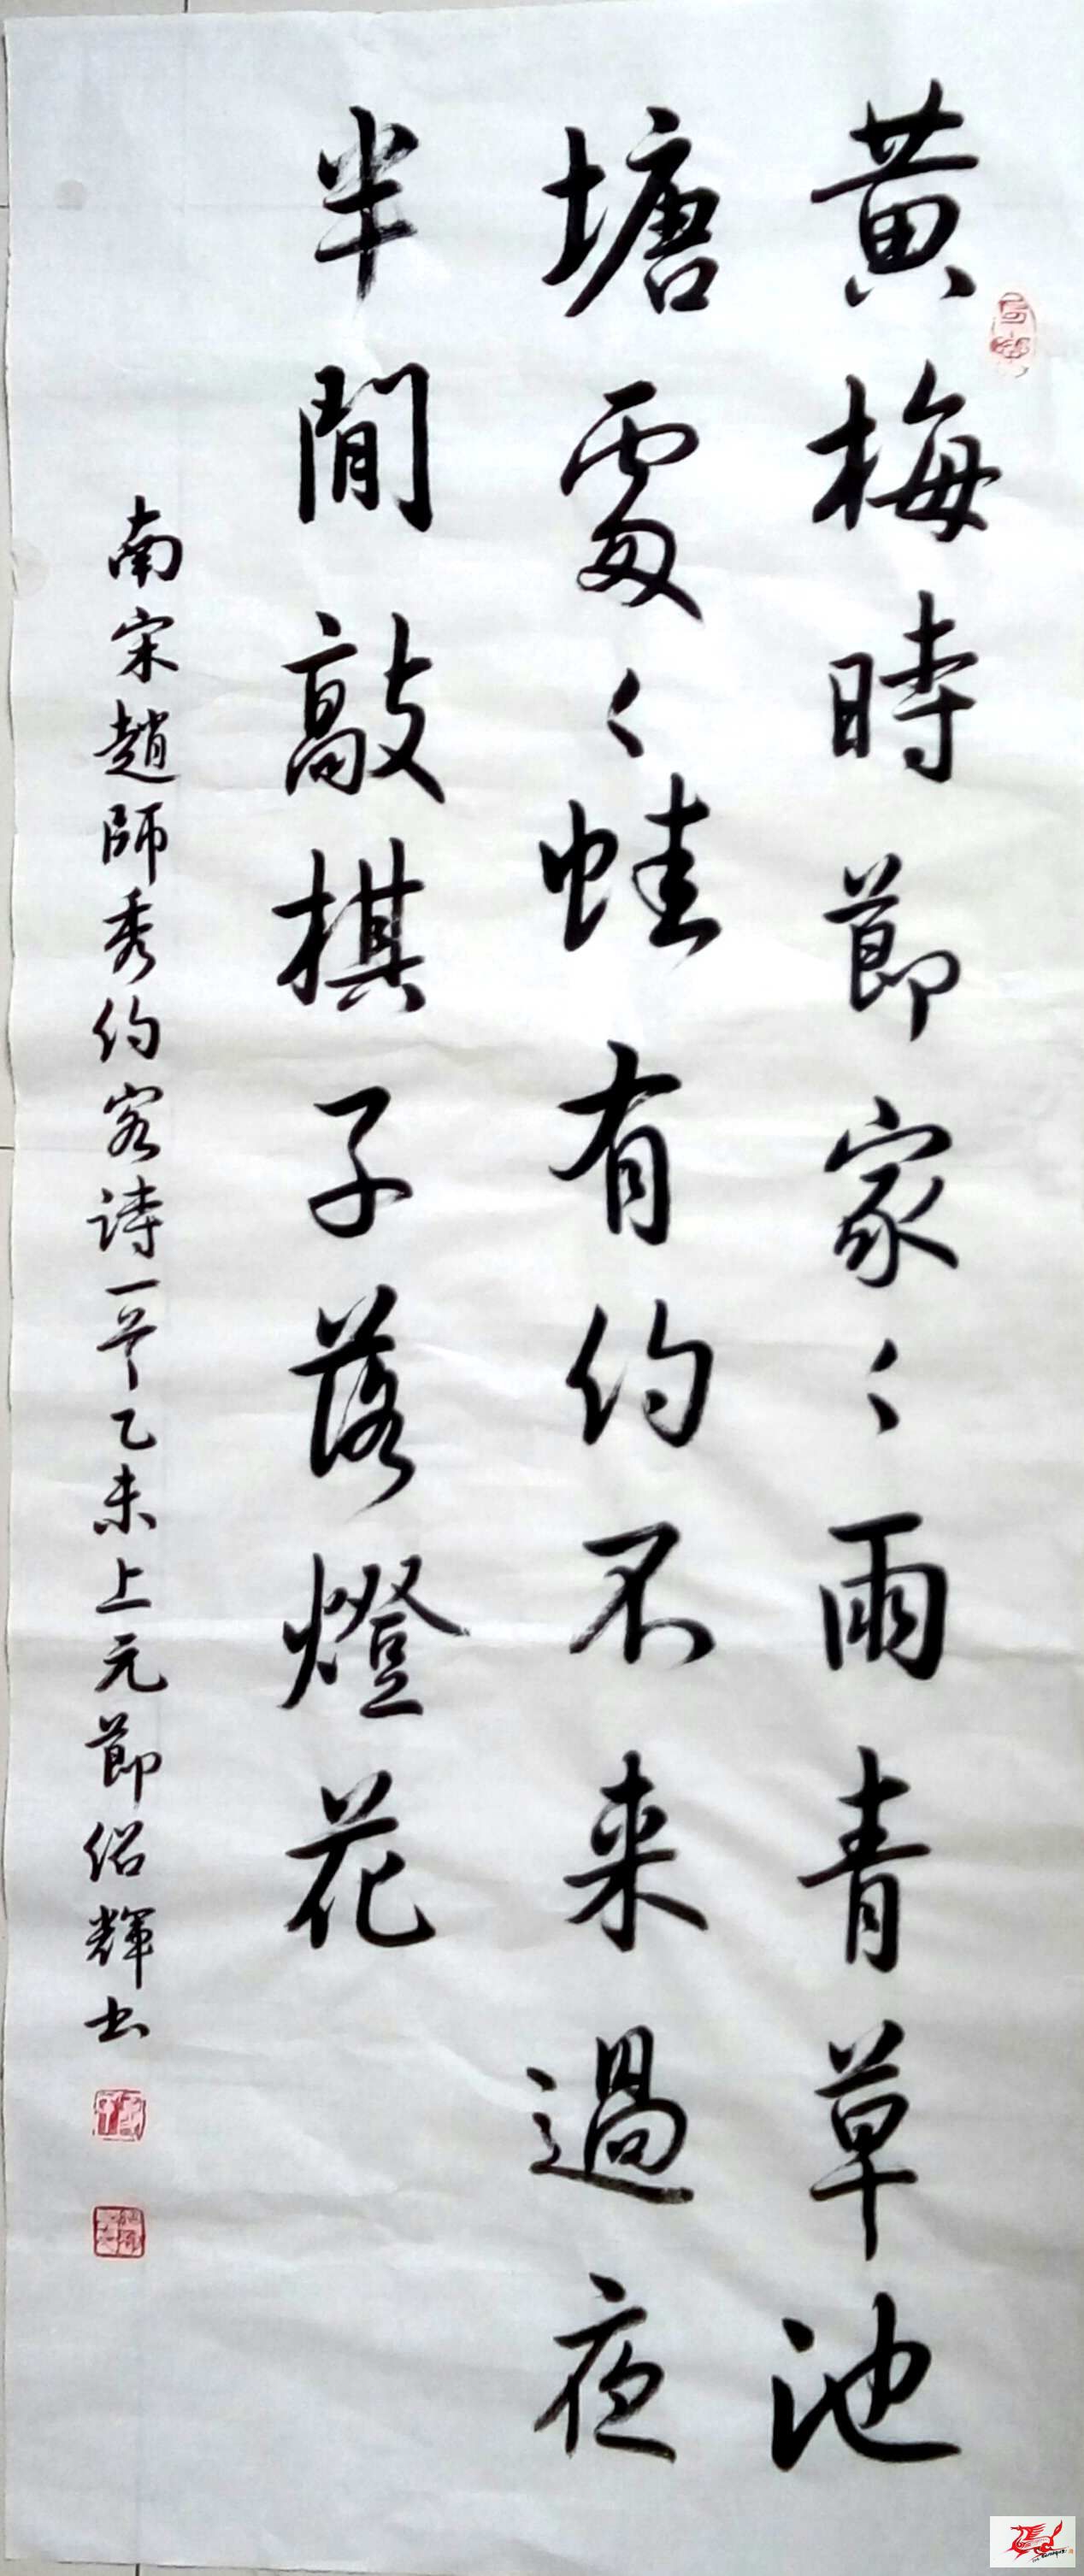 黄梅時節家〻雨青草池
塘處〻蛙有約不来過夜
半閒敲棋子落燈花
南宋趙師秀約客詩一首乙未上元節紹輝书